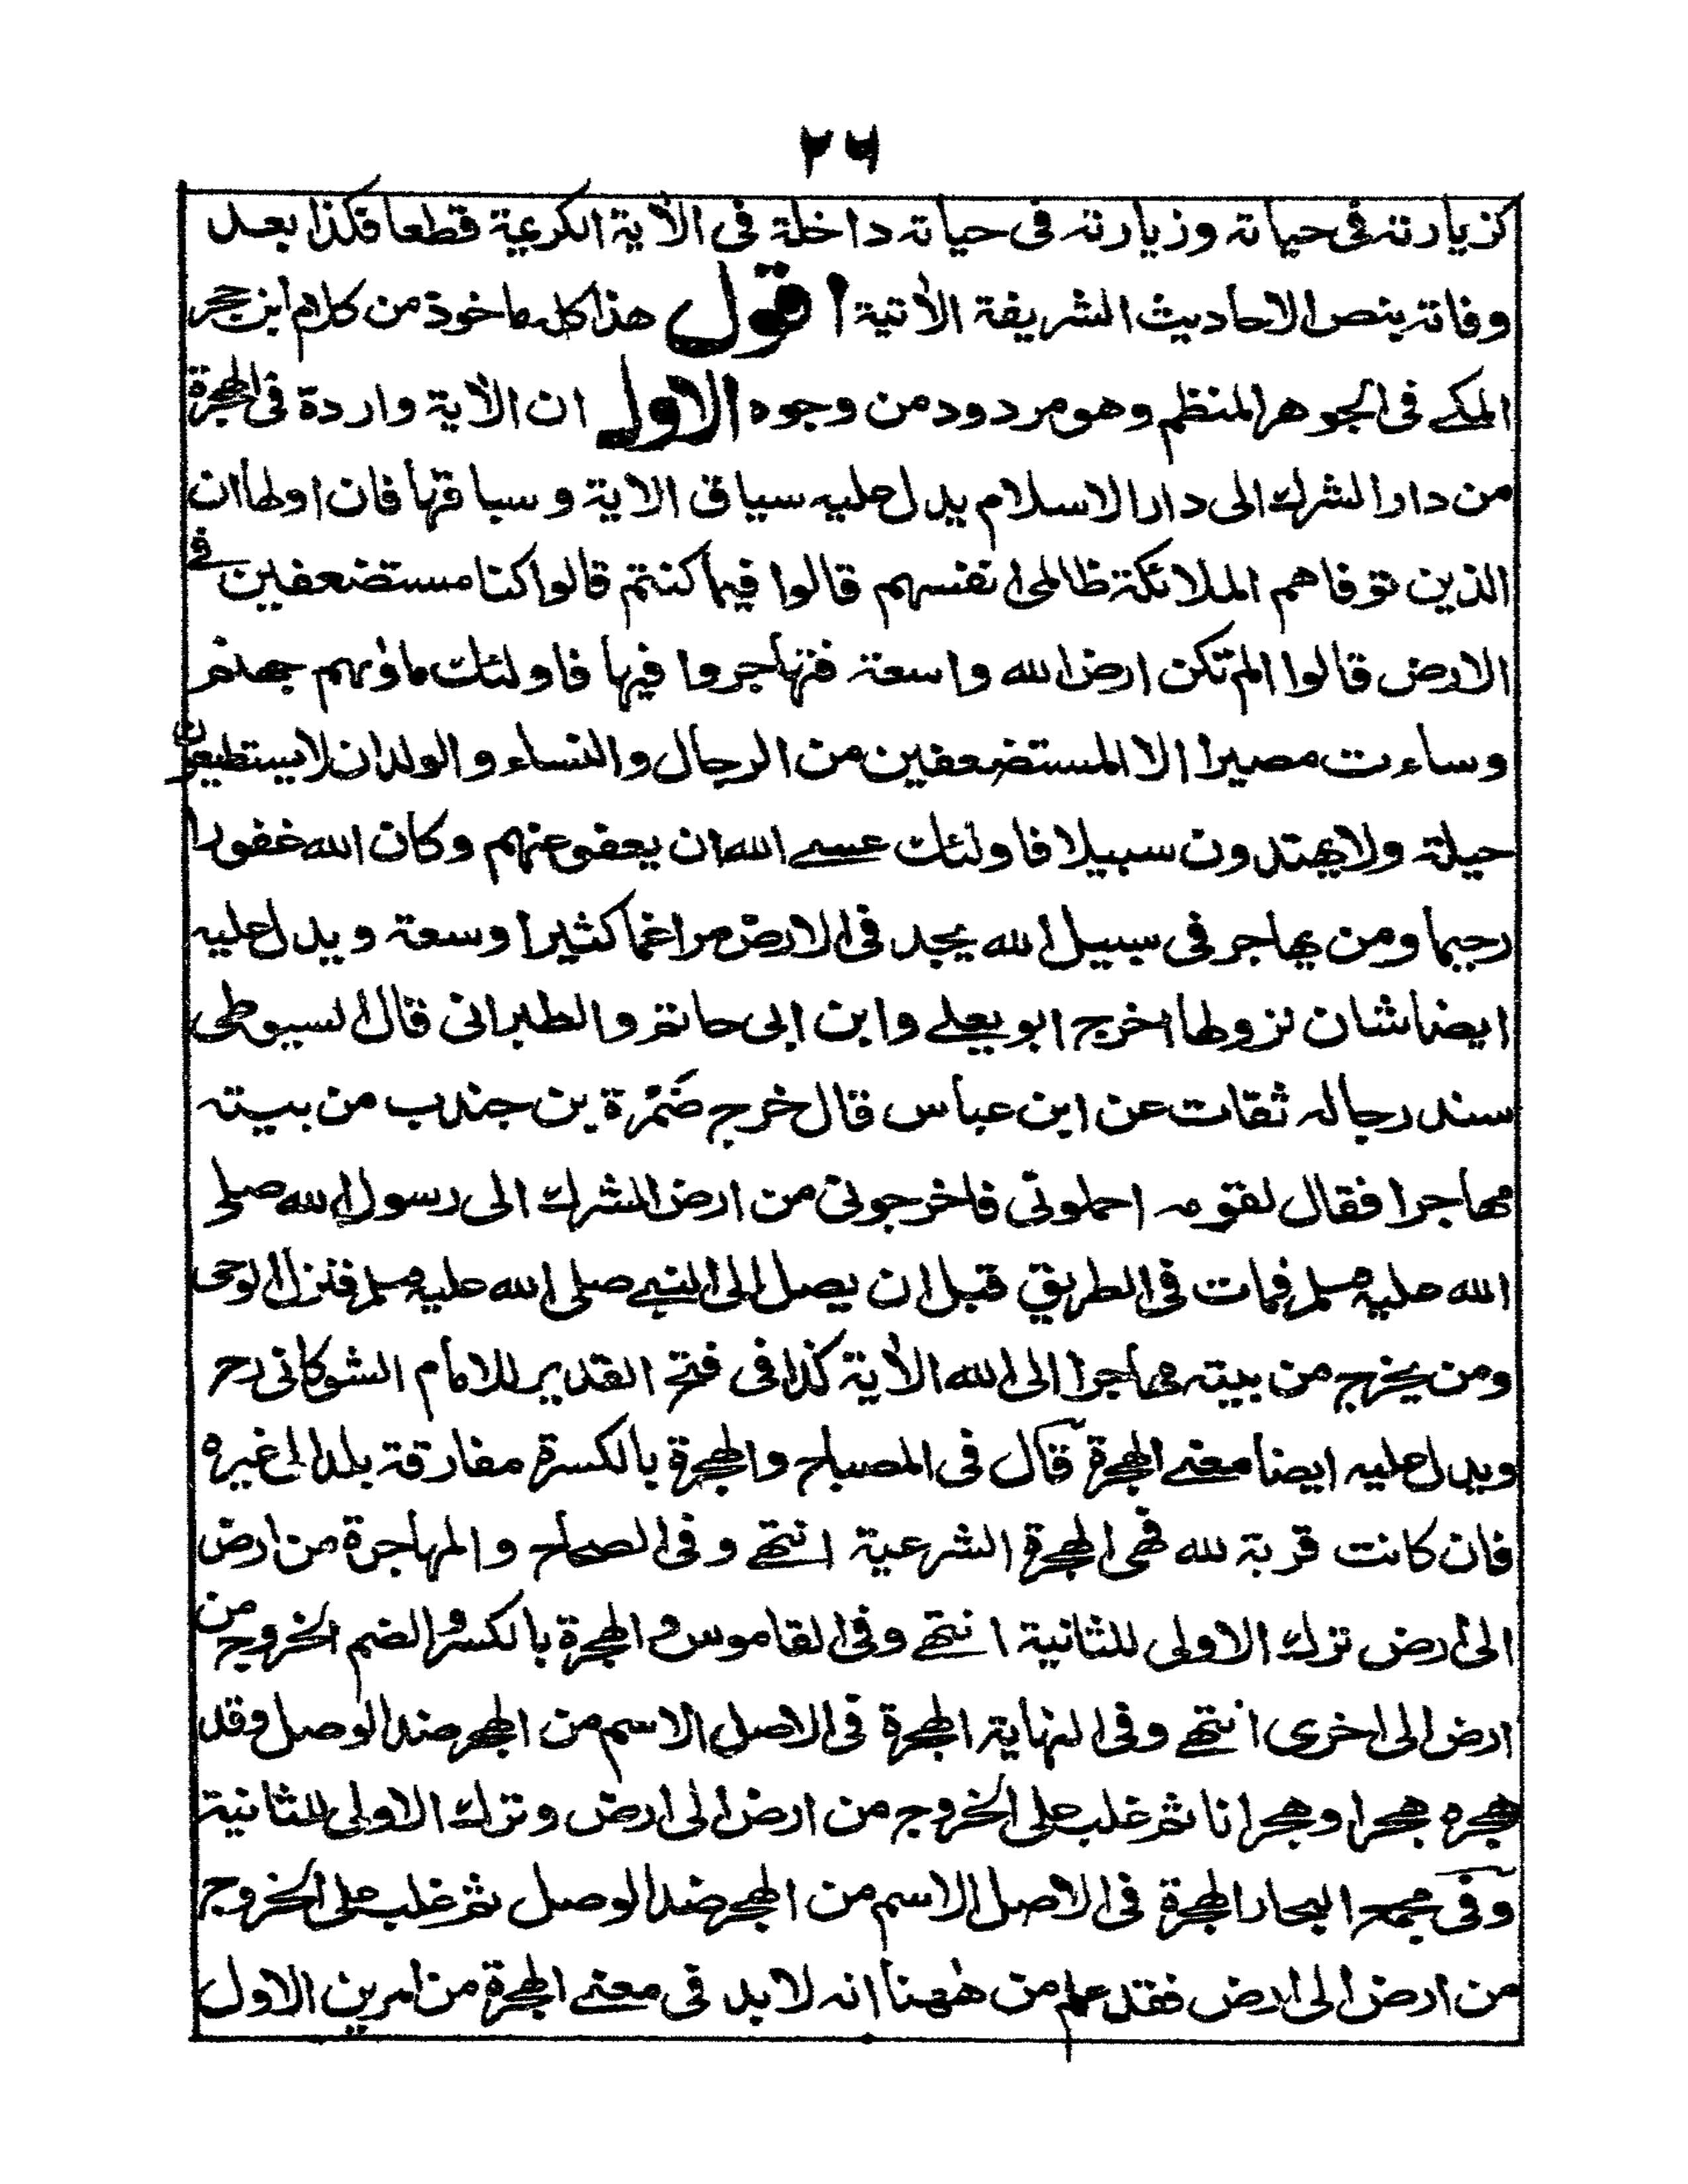 ٢٦
كزيارته فى حياته وزيارته فى حياته داخلة فى الآية الكريمة قطعا فكذا بعد
وفاته بنص الاحاديث الشريفة الآتية اقول هذا كله ماخوذ من كلام ابن حجر
المكے فى الجوهر المنظم وهو مردود من وجوه الاول ان الآية واردة فى الهجرة
من دار الشرك الى دار الاسلام يدل عليه سياق الاية وسباقها فان اولها ان
الذين توفاهم الملائكة ظالمى انفسهم قالوا فيما كنتم قالوا كنا مستضعفين فے
الارض قالوا الم تكن ارض الله واسعة فتهاجروا فيها فاولئك ماوٰىهم جهنم
وساءت مصيرا الا المستضعفين من الرجال والنساء والولدان لا يستطيعون
حيلة ولا يهتدون سبيلا فاولئك عسے الله ان يعفو عنهم وكان الله غفورا
رحيما ومن يهاجر فى سبيل الله يجد فى الارض مراغما كثيرا وسعة ويدل عليه
ايضا شان نزولها اخرج ابو يعلے وابن ابى حاتم والطبرانى قال السيوطى
سند رجاله ثقات عن ابن عباس قال خرج ضَمْرة بن جندب من بيته
مهاجرا فقال لقومه احملونى فاخرجونى من ارض المشرك الى رسول الله صلے
الله عليه وسلم فمات فى الطريق قبل ان يصل الى النبے صلى الله عليه وسلم فنزل الوحى
ومن يخرج من بيته مهاجرا الى الله الآية كذا فى فتح القدير للامام الشوكانى رح
ويدل عليه ايضا معنے الهجرة قال فى المصباح والهجرة بالكسرة مفارقة بلد الى غيره
فان كانت قربة لله فهى الهجرة الشرعية انتهے وفى الصحاح والمهاجرة من ارض
الى ارض ترك الاولى للثانية انتهے وفى القاموس والهجرة بالكسر والضم الخروج من
ارض الى اخرى انتهے وفى النهاية الهجرة فى الاصل الاسم من الهجر ضد الوصل وقد
هجره هجرا وهجرانا ثم غلب على الخروج من ارض الى ارض وترك الاولى للثانية
وفى مجمع البحار الهجرة فى الاصل الاسم من الهجر ضد الوصل ثم غلب على الخروج
من ارض الى ارض فقد علم من هٰهنا انه لا بد فى معنے الهجرة من امرين الاول